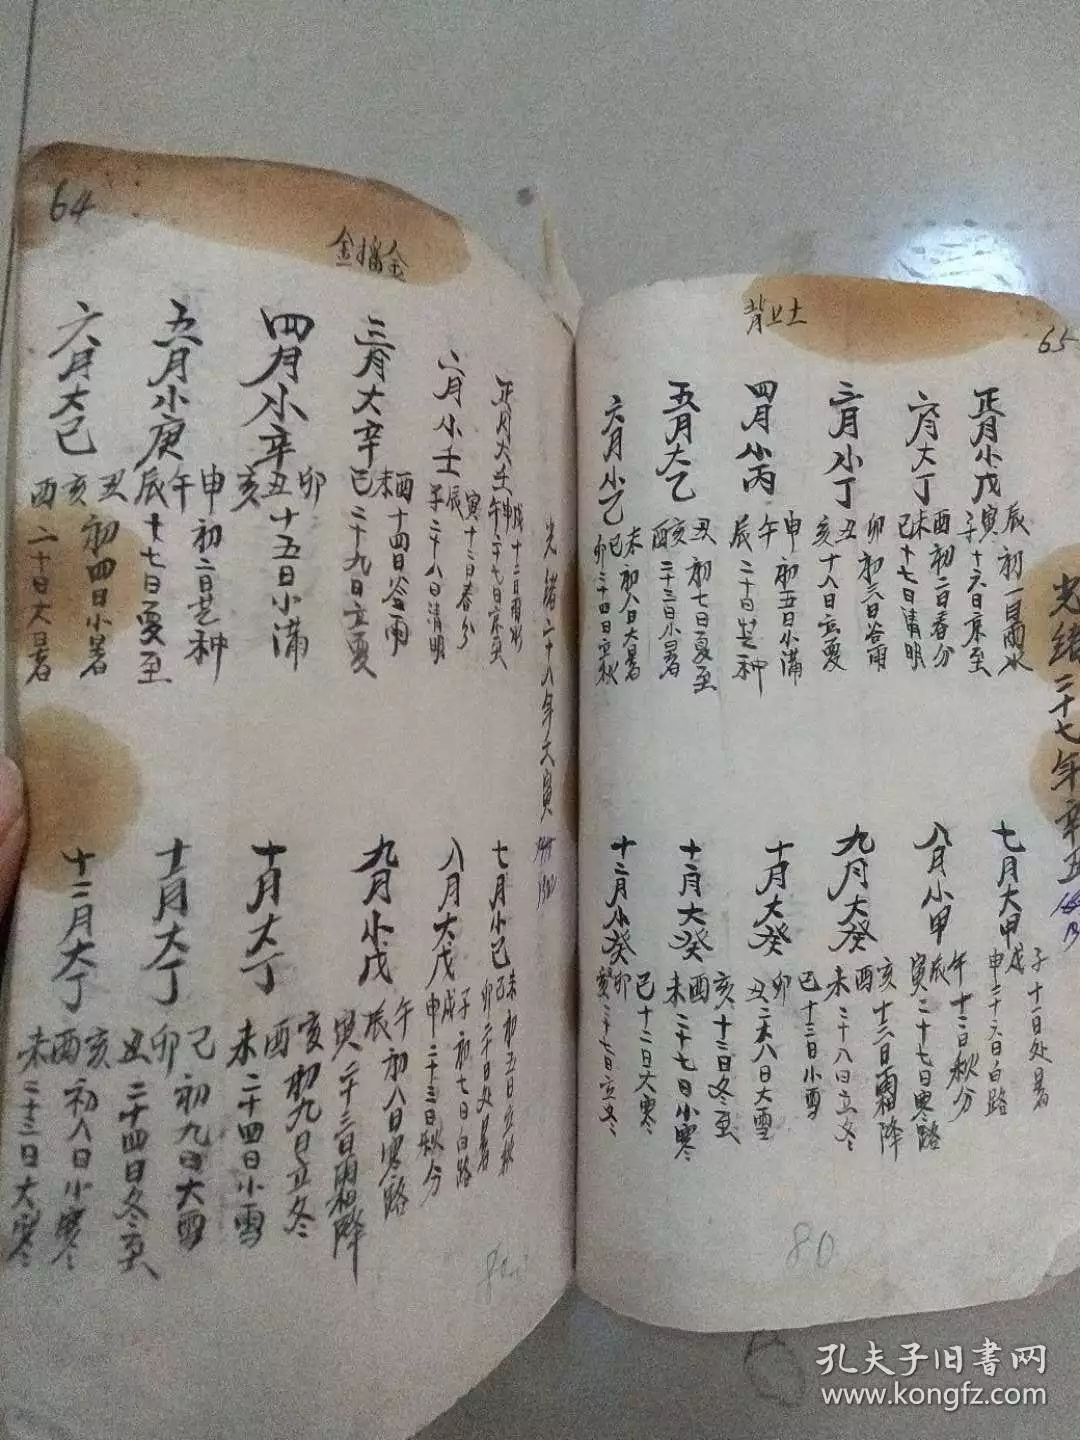 65
土
光緒二十七年辛丑
正月小戊
子寅辰
初一日雨水
十六日京至
六月大丁
巳未酉
初二日春分
十七日清明
三月小丁
亥丑卯
初三日谷雨
十八日立夏
四月小丙
辰午申
初五日小满
二十日芒种
五月大乙
酉亥丑
初七日夏至
二十三日小暑
六月小乙
卯巳未
初八日大暑
二十四日立秋
七月大甲
申戌子
十一日处暑
二十六日白路
八月小甲
寅辰午
十二日秋分
二十七日寒路
九月大癸
未酉亥
十三日霜降
二十八日立冬
十月大癸
丑卯巳
十三日小雪
二十八日大雪
十一月大癸
未酉亥
十二日冬至
二十七日小寒
十二月小癸
亥卯巳
十二日大寒
二十七日立冬
80
64
金播金
光緒二十八年
寅
正月大壬
午申戌
十二日雨水
二十七日京至
二月小壬
子辰寅
十三日春分
二十八日清明
三月大辛
巳未酉
十四日谷雨
二十九日立夏
四月小辛
亥丑卯
十五日小满
五月小庚
辰午申
初二日芒种
十七日夏至
六月大己
酉亥丑
初四日小暑
二十日大暑
七月小己
卯巳未
初五日立秋
二十日处暑
八月大戊
申戌子
初七日白路
二十三日秋分
九月小戊
寅辰午
初八日寒路
二十三日霜降
十月大丁
未酉亥
初九日立冬
二十四日小雪
十一月大丁
丑卯己
初九日大雪
二十四日冬至
十二月大丁
未酉亥
初八日小寒
二十三日大寒
孔夫子旧書网
www.kongfz.com